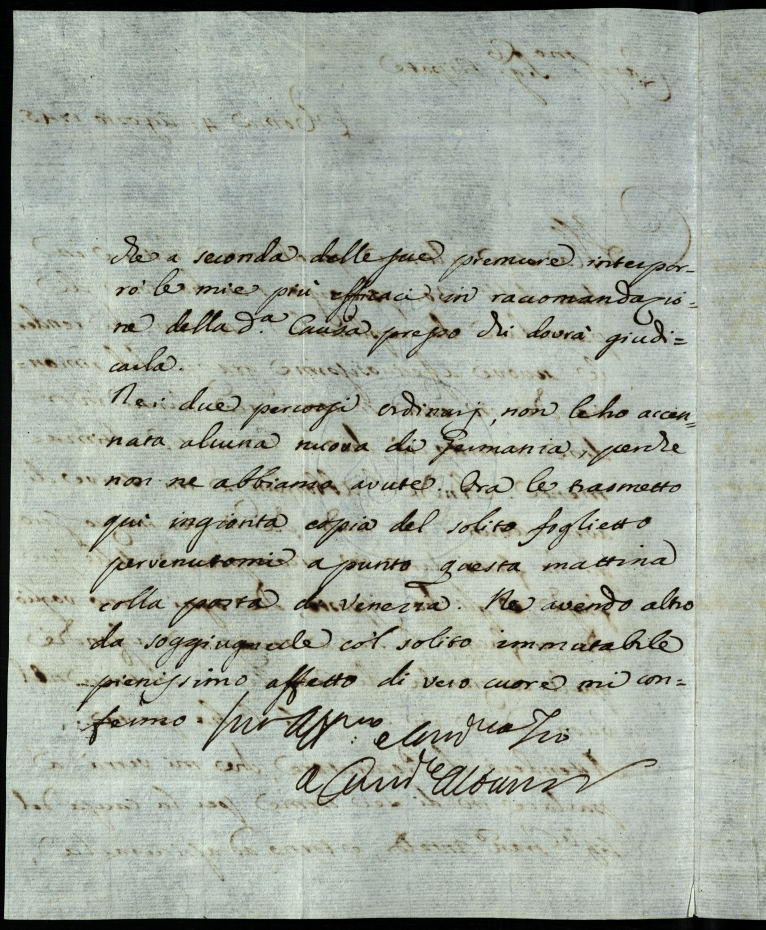 che a seconda delle sue premure interpor-
rò le mie più efficaci in raccomandazio-
ne della d.a Causa presso chi dovrà giudi=
carla.
Nei due percorsi ordinarj, non le ho accen-
nata alcuna nuova di Germania, perche
non ne abbiamo avute. Ora le trasmetto
qui ingionta copia del solito foglietto
pervenutomi a punto questa mattina
colla posta di Venezia. Ne avendo altro
da soggiugnerle col solito immutabile
pienissimo affetto di vero cuore mi con=
fermo suo Aff.mo
A Card.le Albani